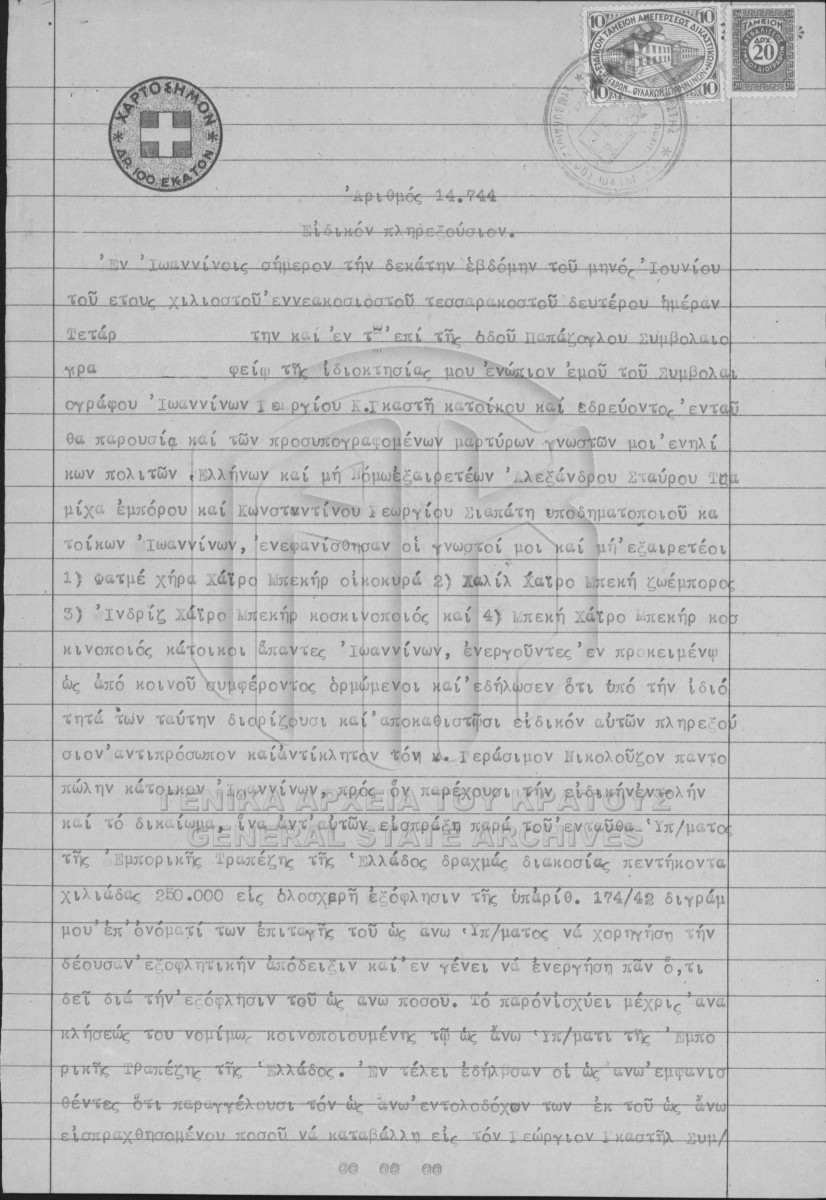 10 ΕΙΔΙΚΟΝ ΤΑΜΕΙΟΝ ΑΝΕΓΕΡΣΕΩΣ ΔΙΚΑΣΤΙΚΩΝ 10
10 ΜΕΓΑΡΩΝ ΦΥΛΑΚΩΝ 10
ΤΑΜΕΙΟΝ
ΔΡΧ
20
ΧΑΡΤΟΣΗΜΟΝ
ΔΡ. 100 ΕΚΑΤΟΝ
Ἀριθμός 14.744
Εἰδικόν πληρεξούσιον.
Ἐν Ἰωαννίνοις σήμερον τήν δεκάτην ἑβδόμην τοῦ μηνός Ἰουνίου
τοῦ ετους χιλιοστοῦ ἐννεακοσιοστοῦ τεσσαρακοστοῦ δευτέρου ἡμέραν
Τετάρ την καί ἐν τῳ ἐπί τῆς ὁδοῦ Παπάζογλου Συμβολαιο
γρα φείῳ τῆς ἰδιοκτησίας μου ἐνώπιον ἐμοῦ τοῦ Συμβολαι
ογράφου Ἰωαννίνων Γεωργίου Κ.Γκαστῆ κατοίκου καί ἑδρεύοντος ἐνταῦ
θα παρουσίᾳ καί τῶν προσυπογραφομένων μαρτύρων γνωστῶν μοι ἐνηλί
κων πολιτῶν Ἑλλήνων καί μή Νόμῳ ἐξαιρετέων Ἀλεξάνδρου Σταύρου Τσα
μίχα ἐμπόρου καί Κωνσταντίνου Γεωργίου Σιαπάτη ὑποδηματοποιοῦ κα
τοίκων Ἰωαννίνων, ἐνεφανίσθησαν οἱ γνωστοί μοι καί μή ἐξαιρετέοι
1) Φατμέ χήρα Χάϊρο Μπεκήρ οἰκοκυρά 2) Χαλίλ Χαϊρο Μπεκή ζωέμπορος
3) Ἰνδρίζ Χάϊρο Μπεκήρ κοσκινοποιός καί 4) Μπεκή Χάϊρο Μπεκήρ κοσ
κινοποιός κάτοικοι ἅπαντες Ἰωαννίνων, ἐνεργοῦντες ἐν προκειμένῳ
ὡς ἀπό κοινοῦ συμφέροντος ὁρμώμενοι καί ἐδήλωσεν ὅτι ὑπό τήν ἰδιό
τητά των ταύτην διορίζουσι καί ἀποκαθιστῶσι εἰδικόν αὐτῶν πληρεξού
σιον ἀντιπρόσωπον καί ἀντίκλητον τόν κ. Γεράσιμον Νικολοῦζον παντο
πώλην κάτοικον Ἰωαννίνων, πρός ὅν παρέχουσι τήν εἰδικήν ἐντολήν
ΓΕΝΙΚΑ ΑΡΧΕΙΑ ΤΟΥ ΚΡΑΤΟΥΣ
καί τό δικαίωμα, ἵνα ἀντ'αὐτῶν εἰσπράξῃ παρά τοῦ ἐνταῦθα Ὑπ/ματος
GENERAL STATE ARCHIVES
τῆς Ἐμπορικῆς Τραπέζης τῆς Ἑλλάδος δραχμάς διακοσίας πεντήκοντα
χιλιάδας 250.000 εἰς ὁλοσχερῆ ἐξόφλησιν τῆς ὑπάριθ. 174/42 διγράμ
μου ἐπ'ὀνόματί των ἐπιταγῆς τοῦ ὡς ανω Ὑπ/ματος νά χορηγήσῃ τήν
δέουσαν ἐξοφλητικήν ἀπόδειξιν καί ἐν γένει νά ἐνεργήσῃ πᾶν ὅ,τι
δεῖ διά τήν ἐξόφλησιν τοῦ ὡς ανω ποσοῦ. Τό παρόν ἰσχύει μέχρις ἀνα
κλήσεώς του νομίμως κοινοποιουμένης τῷ ὡς ἄνω Ὑπ/ματι τῆς Ἐμπο
ρικῆς Τραπέζης τῆς Ἑλλάδος. Ἐν τέλει ἐδήλωσαν οἱ ὡς ανω ἐμφανισ
θέντες ὅτι παραγγέλουσι τόν ὡς ἀνω ἐντολοδόχον των ἐκ τοῦ ὡς ἄνω
εἰσπραχθησομένου ποσοῦ νά καταβάλῃ εἰς τόν Γεώργιον Γκαστῆλ Συμ/